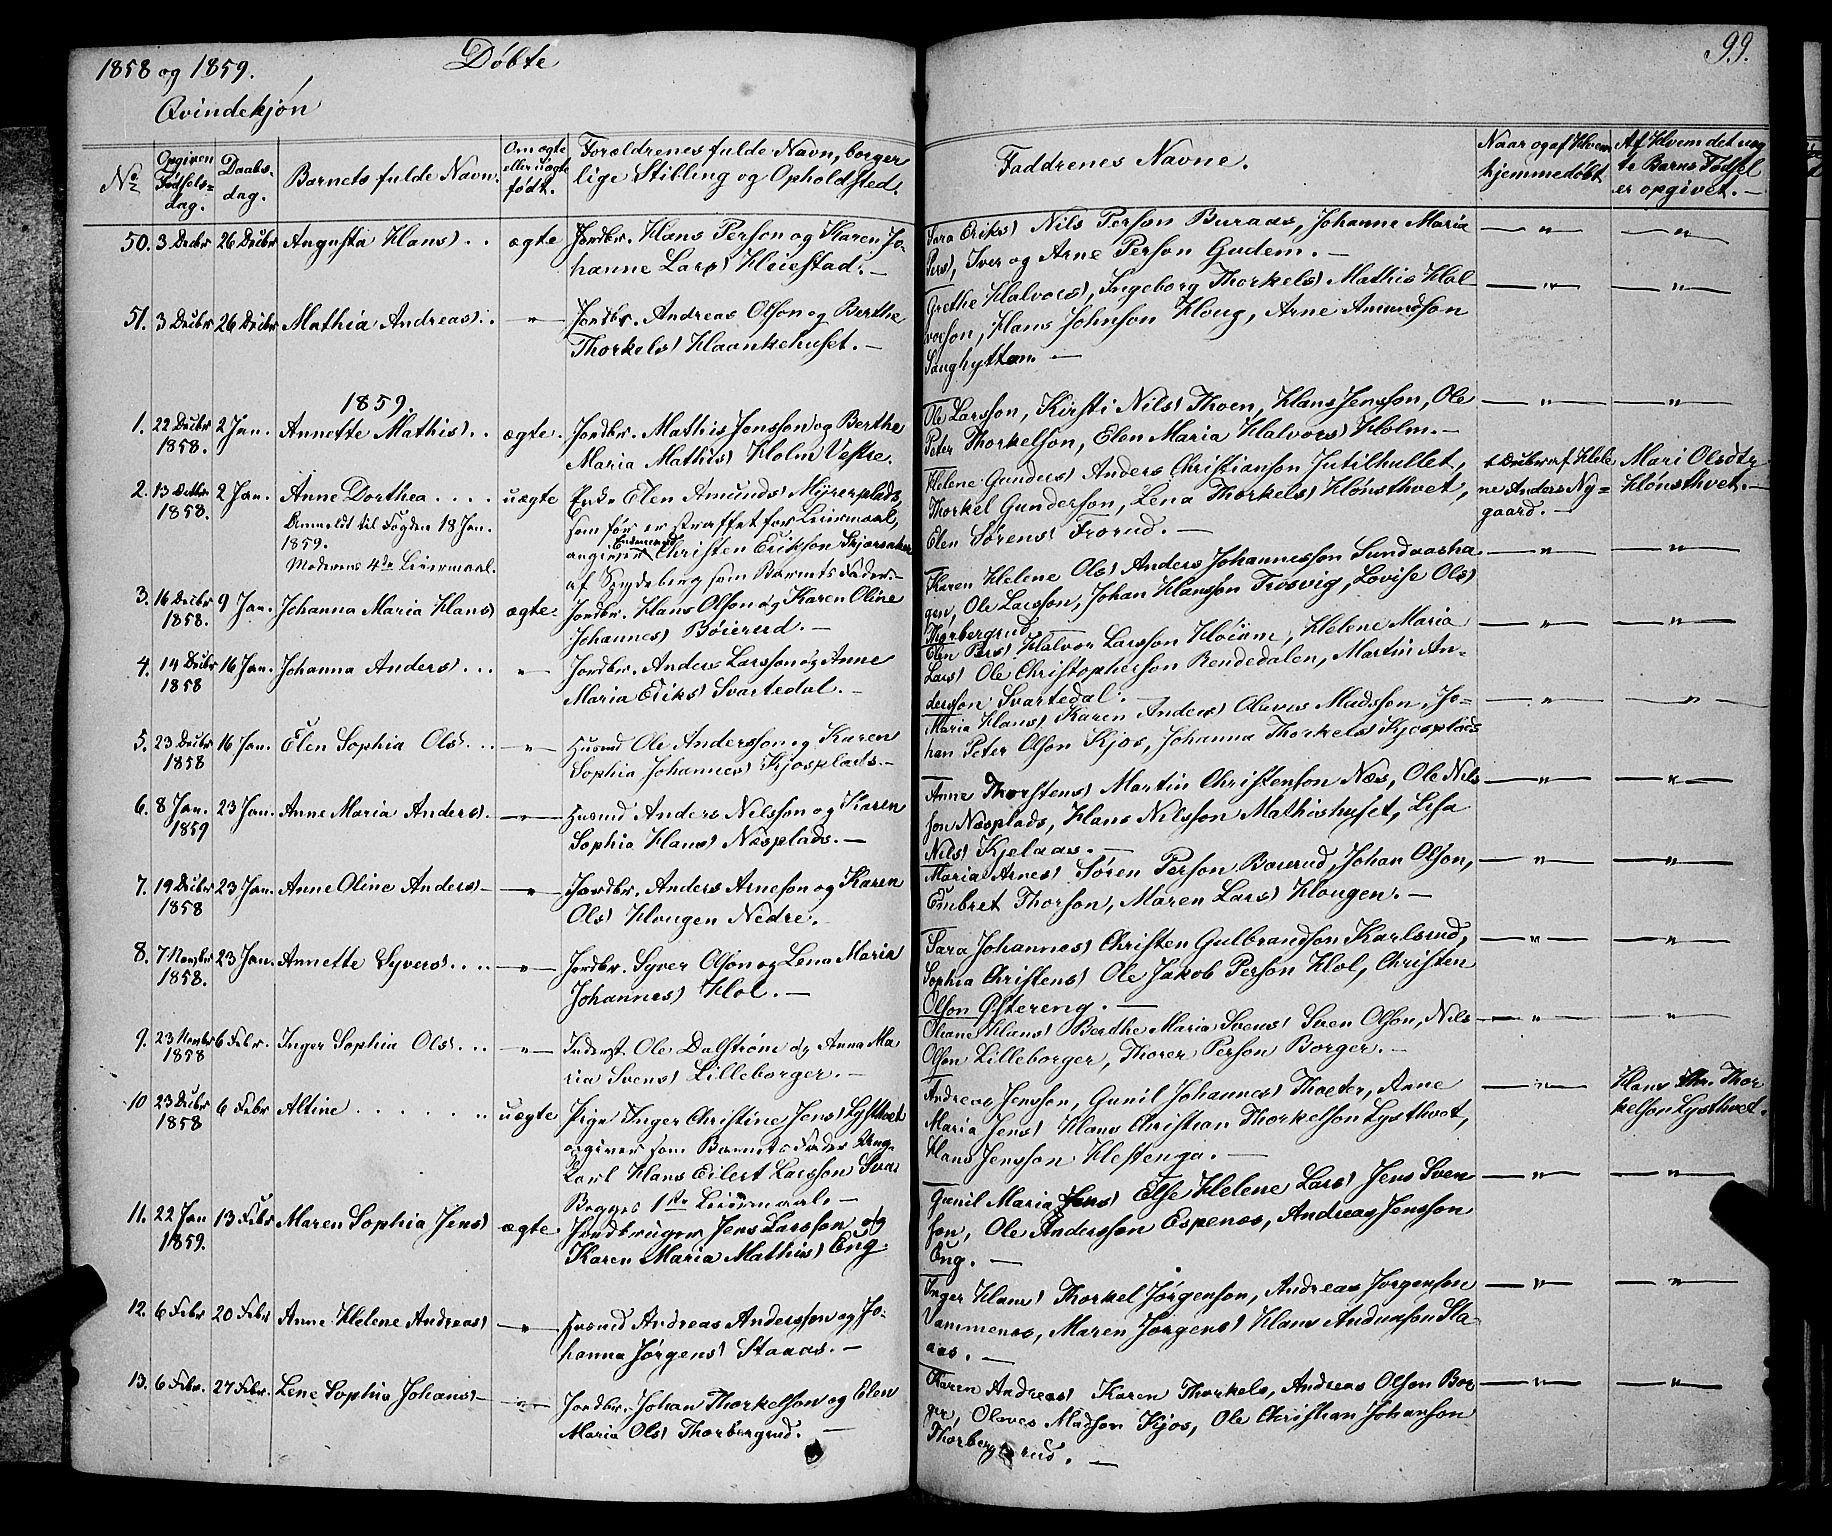 1858 og 1859.
Døbte
99.
Qvindekjøn
No
Opgiven Fødsels-dag.
Daabs-dag.
Barnets fulde Navn.
Om ægte eller uægte født.
Forældrenes fulde Navn, borgerlige Stilling og Opholdsted.
Faddrenes Navne.
Naar og af Hvem hjemmedøbt
Af Hvem det uægte Barns Fødsel er opgivet. —
50. 3 Decbr 26 Decbr Augusta Hans) . . ægte Jordbr. Hans Person og Karen Jo-
hanne Lars)
Sara Eriks) Nils Person Buraas, Johanne Maria
Pers), Iver og Arne Person Gudem. —
51. 3 Decbr 26 Decbr Mathia Andreas) . — " — Jordbr. Andreas Olson og Berthe
Thorkels) Haankehuset. —
Grethe Halvors), Ingeborg Thorkels) Mathis Hal-
vorson, Hans Johnson Houg, Arne Amundson
Saughytten. —
1859.
1. 22 Decbr 1858. 2 Jan. Annette Mathis) . . ægte. Jordbr. Mathis Jonsson og Berthe
Maria Mathis) Holm Vestre.
Ole Larsson, Kirsti Nils) Thoen, Hans Jensson, Ole
Peter Thorkelson, Elen Maria Halvors) Holm. —
2. 13 Decbr 1858. 2 Jan. Anne Dorthea . . . . uægte Enke Elen Amunds) Myrerplads,
som før er straffet for Leiermaal,
angiver Ensomand Christen Erikson
af Spydeberg som Barnets Fader. —
Anmeldt til Fogden 18 Jan.
1859.
Moderens 4de Leiermaal.
Helene Gunders) Anders Christianson Jutilhullet,
Thorkel Gunderson, Lena Thorkels) Hønsthvet,
Elen Sørens) Frorud. —
Decbr af Hele
ne Anders) Ny-
gaard. —
Mari Olsdtr
Hønsthvet. —
3. 16 Decbr 1858. 9 Jan. Johanna Maria Hans) ægte. Jordbr. Hans Olson og Karen Oline
Johannes) Böierud. —
Karen Helene Ols) Anders Johannesson Sundvasha-
gen, Ole Larsson, Johan Hansson Trosvig, Lovise Ols)
Thorbergrud
4. 14 Decbr 1858 16 Jan. Johanna Anders) . . . — " — Jordbr. Anders Larsson og Anne
Maria Eriks) Svartedal. —
Elen Pers) Halvor Larsson Höium, Helene Maria
Lars) Ole Christopherson Rendedalen, Martin An-
dersson Svartedal. —
5. 23 Decbr 1858 16 Jan. Elen Sophia Ols) . . . — " — Husmd Ole Andersson og Karen
Sophia Johannes) Kjosplads. —
Maria Hans) Karen Anders) Olaves Madsson, Jo-
han Peter Olson Kjos, Johanna Thorkels) Kjosplads
6. 8 Jan. 1859 23 Jan. Anne Maria Anders) . — " — Husmd Anders Nilsson og Karen
Sophia Hans) Næsplads. —
Anne Thorstens) Martin Christenson Næs, Ole Nils
son Næsplads, Hans Nilsson Mathishuset, Lisa
Nils) Kjelaas. —
7. 19 Decbr 1858 23 Jan. Anne Oline Anders) — " — Jordbr. Anders Arneson og Karen
Ols) Hougen Nedre. —
Maria Arnes) Sören Person Bøierud, Johan Olson,
Embret Thorson, Maren Lars) Hougen. —
8. 7 Novbr 1858. 23 Jan. Annette Syvers) . . . . — " — Jordbr. Syver Olson og Lena Maria
Johannes) Hol. —
Sara Johannes) Christen Gulbrandson Karlsrud,
Sophia Christens) Ole Jakob Person Hol, Christen
Olson Østereng. —
9. 23 Novbr 1858 6 Febr. Inger Sophia Ols) . . . — " — Inderst. Ole Dalstrøm og Anna Ma-
ria Svens) Lilleborger. —
Oliane Hans) Berthe Maria Svens) Sven Olson, Nils
Olson Lilleborger, Thorer Person Borger. —
10 23 Decbr 1858 6 Febr Altine . . . . . . . uægte Pige Inger Christine Jens) Lysthvet
angiver som Barnets Fader Ung-
karl Hans Eilert Larsson
Begges 1ste Leiermaal. —
Andreas Jensson, Gunil Johannes) Thoeter, Anne
Maria Jens) Hans Christian Thorkelson Lysthvet,
Hans Jensson Hestenga. —
Hans Chr. Thor
kelson Lysthvet.
11. 22 Jan 1859. 13 Febr Maren Sophia Jens) ægte Jordbruger Jens Larsson og
Karen Maria Mathis) Eng.
Gunil Maria Jens) Else Helene Lars) Jens Sven
son, Ole Andersson Espenes, Andreas Jensson
Eng. —
12. 6 Febr 20 Febr Anne Helene Andreas) — " — Husmd Andreas Andersson og Jo-
hanna Jörgens) Staaas. —
Inger Hans) Thorkel Jörgenson, Andreas Jorgenson
Vammenes, Maren Jörgens) Hans Anderson Sta-
aas. —
13. 6 Febr. 27 Febr. Lene Sophia Johans) — " — Jordbr. Johan Thorkelson og Elen
Maria Ols) Thorbergrud. —
Karen Andreas) Karen Thorkels), Andreas Olson Bor
ger, Olaves Madson Kjos, Ole Christian Johanson
Thorbergsrud. —